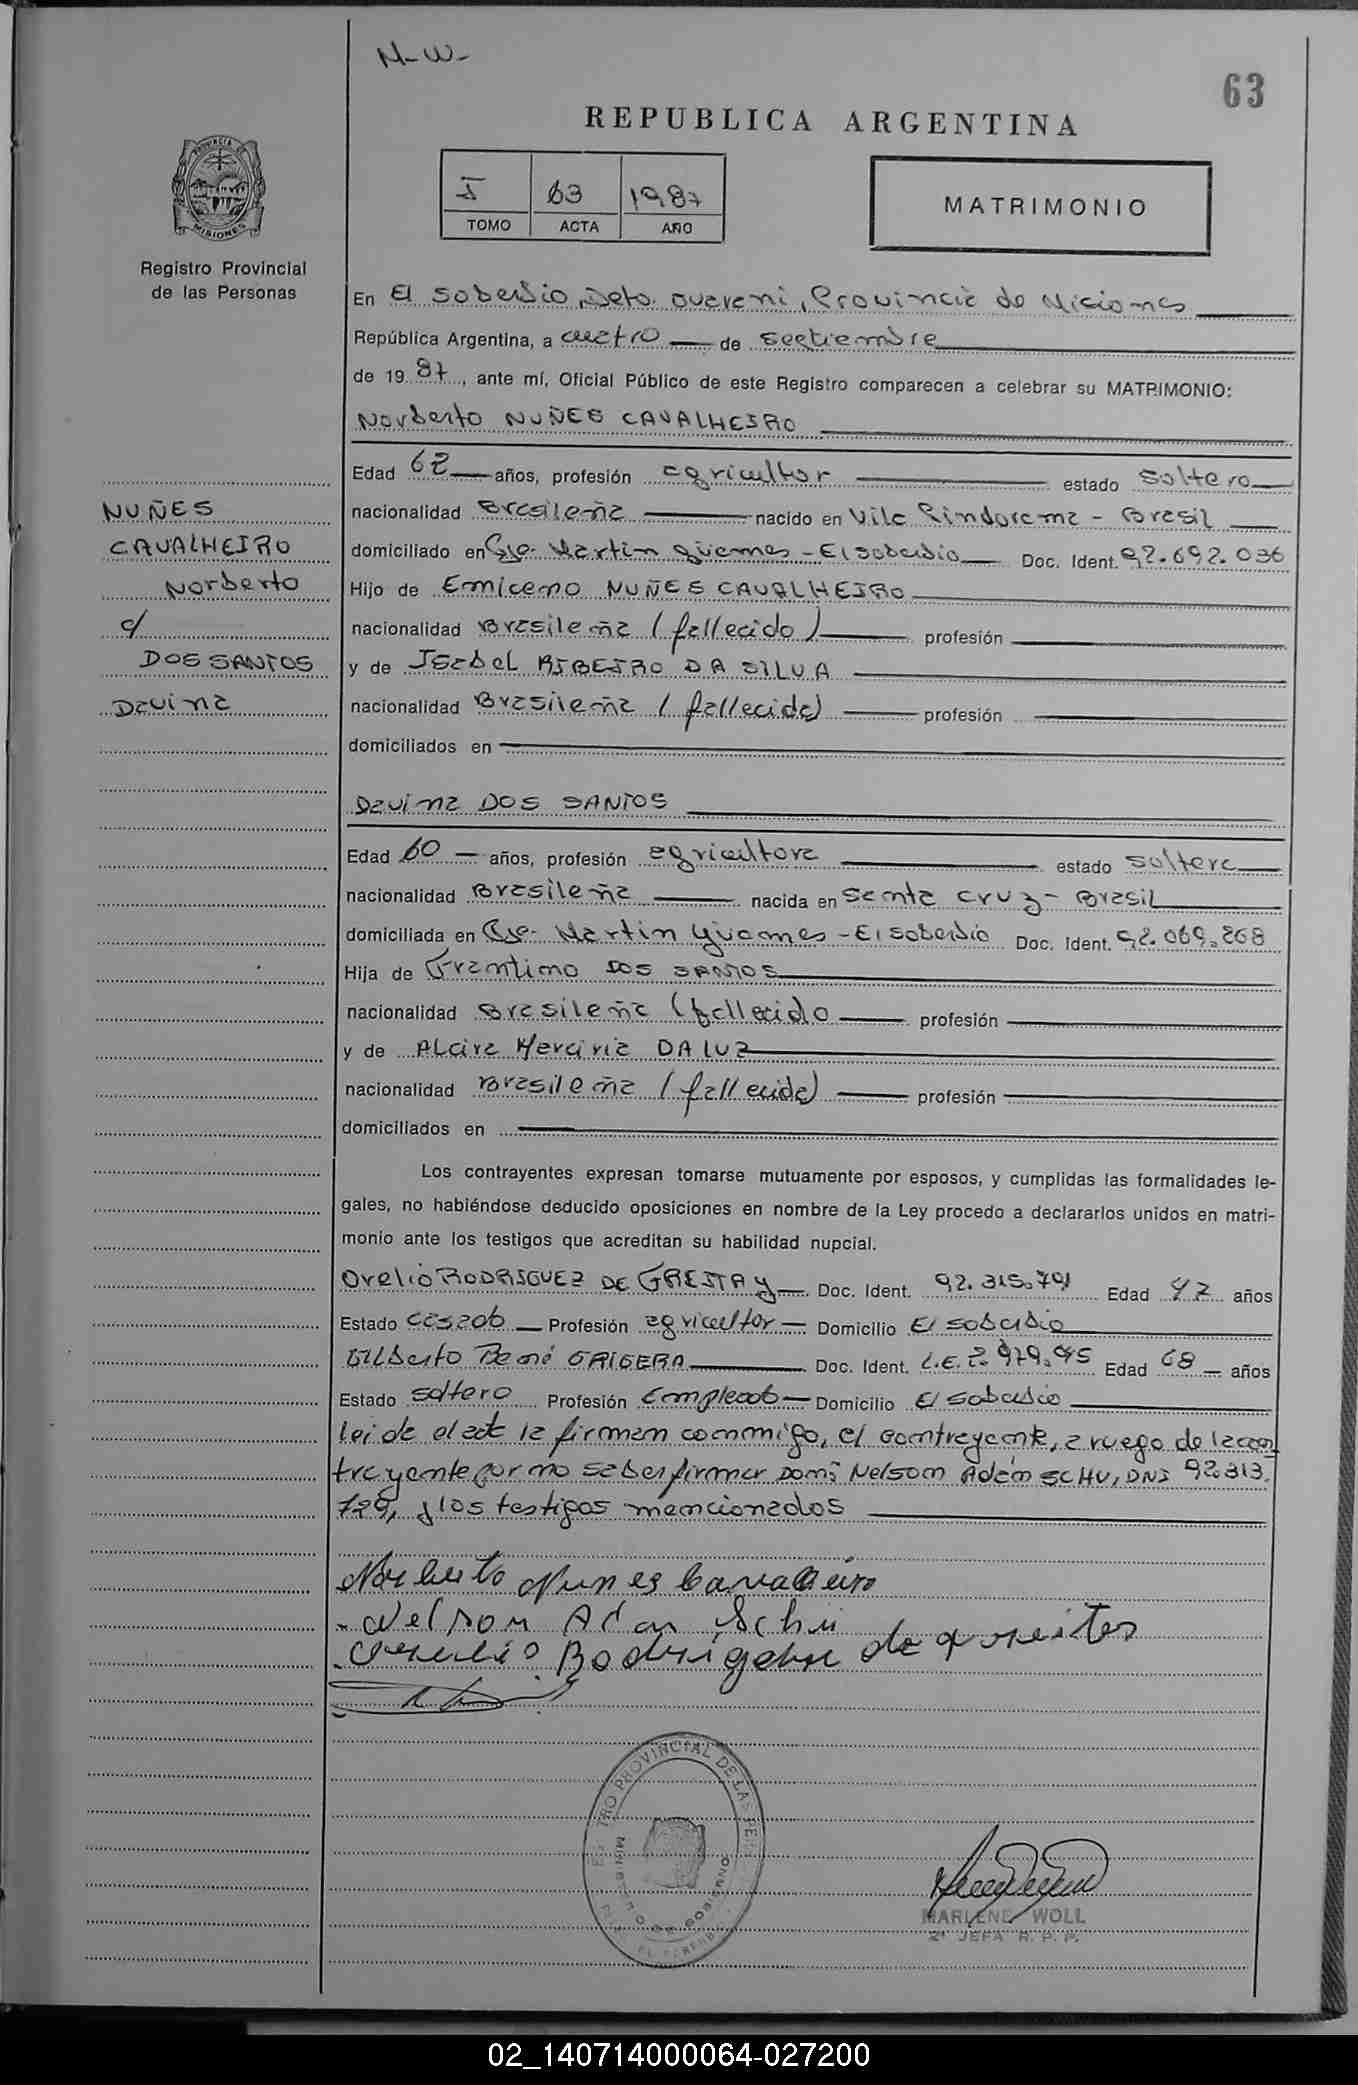 N-W-
63
REPUBLICA ARGENTINA
I 63 1987
TOMO ACTA AÑO
MATRIMONIO
PROVINCIA DE
MISIONES
Registro Provincial
de las Personas
En El Soberbio, Deto. Guarani, Provincia de Misiones
República Argentina, a cuatro de septiembre
de 19 87, ante mí, Oficial Público de este Registro comparecen a celebrar su MATRIMONIO:
Norberto NUÑES CAVALHEIRO
Edad 62 años, profesión agricultor estado soltero
nacionalidad Brasileña nacido en Vila Pindorama - Brasil
domiciliado en Martin Güemes - El soberbio Doc. Ident. 92.692.036
Hijo de Emicemo NUÑES CAVALHEIRO
nacionalidad Brasileña (fallecido) profesión
y de Isabel RIBEIRO DA SILVA
nacionalidad Brasileña (fallecida) profesión
domiciliados en
NUÑES
CAVALHEIRO
Norberto
c/
DOS SANTOS
Davina
Davina DOS SANTOS
Edad 60 años, profesión agricultora estado soltera
nacionalidad Brasileña nacida en Santa Cruz - Brasil
domiciliada en Martin Güemes - El soberbio Doc. Ident. 92.069.268
Hija de Frantimo DOS SANTOS
nacionalidad Brasileña (fallecido profesión
y de Alcira DA LUZ
nacionalidad Brasileña (fallecida) profesión
domiciliados en
Los contrayentes expresan tomarse mutuamente por esposos, y cumplidas las formalidades le-
gales, no habiéndose deducido oposiciones en nombre de la Ley procedo a declararlos unidos en matri-
monio ante los testigos que acreditan su habilidad nupcial.
Orelio RODRIGUEZ DE Doc. Ident. 92.315.791 Edad 42 años
Estado casado Profesión agricultor Domicilio El soberbio
Gilberto René GRIGERA Doc. Ident. L.E. Edad 68 años
Estado soltero Profesión empleado Domicilio El soberbio
leida el acta la firman conmigo, el contrayente, a ruego de la con
trayente por no saber firmar Don: Nelson Adan SCHU, DNI 92.313.
729, y los testigos mencionados
Norberto Nunes Cavalheiro
Nelson Adan Schu
REGISTRO PROVINCIAL DE LAS PER
MINISTERIO DE GOBIERNO
MARLENE WOLL
2ª JEFA R. P. P.
02_140714000064-027200